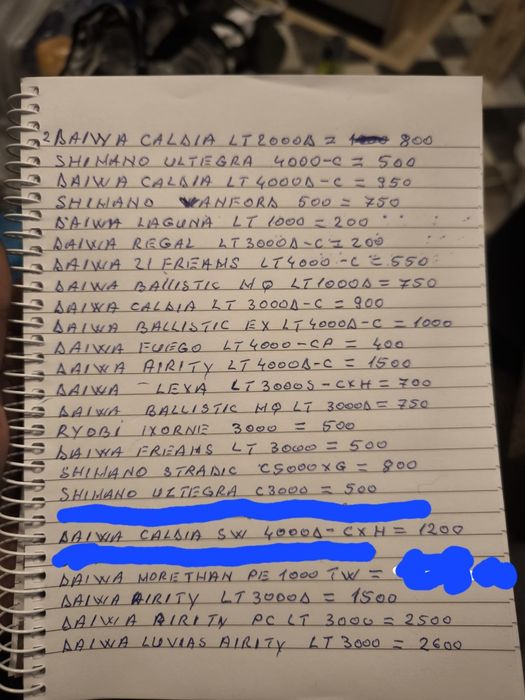 2 DAIWA CALDIA LT2000D = 800
SHIMANO ULTEGRA 4000-C = 500
DAIWA CALDIA LT4000D-C = 950
SHIMANO VANFORD 500 = 750
DAIWA LAGUNA LT 1000 = 200
DAIWA REGAL LT3000D-C = 200
DAIWA 21 FREAMS LT4000-C = 550
DAIWA BALLISTIC MQ LT1000D = 750
DAIWA CALDIA LT 3000D-C = 900
DAIWA BALLISTIC EX LT4000D-C = 1000
DAIWA FUEGO LT4000-CP = 400
DAIWA AIRITY LT4000D-C = 1500
DAIWA LEXA LT3000S-CXH = 700
DAIWA BALLISTIC MQ LT 3000D = 750
RYOBI IXORNE 3000 = 500
DAIWA FREAMS LT 3000 = 500
SHIMANO STRADIC C5000XG = 800
SHIMANO ULTEGRA C3000 = 500
DAIWA CALDIA SW 4000D-CXH = 1200
DAIWA MORETHAN PE 1000 TW =
DAIWA AIRITY LT3000D = 1500
DAIWA AIRITY PC LT 3000 = 2500
DAIWA LUVIAS AIRITY LT 3000 = 2600